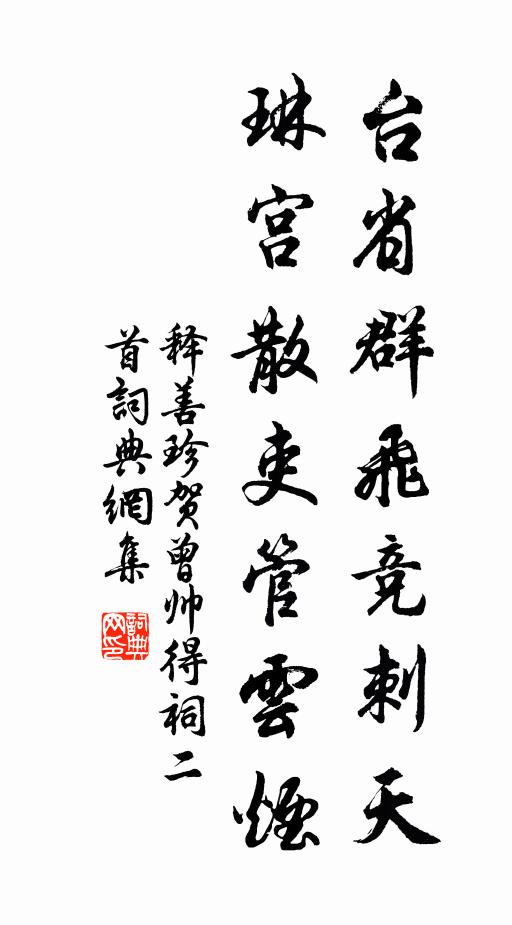 台省群飛竞刺天
琳宫散吏管雲煙
释善珍贺曾帅得祠二
首詞典網集
詞典網印